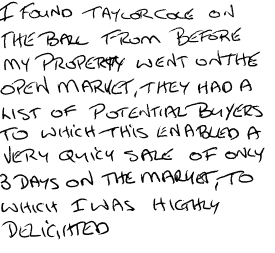 I FOUND TAYLORCOLE ON
THE BALL FROM BEFORE
MY PROPERTY WENT ON THE
OPEN MARKET, THEY HAD A
LIST OF POTENTIAL BUYERS
TO WHICH THIS ENABLED A
VERY QUICK SALE OF ONLY
3 DAYS ON THE MARKET, TO
WHICH I WAS HIGHLY
DELIGHTED